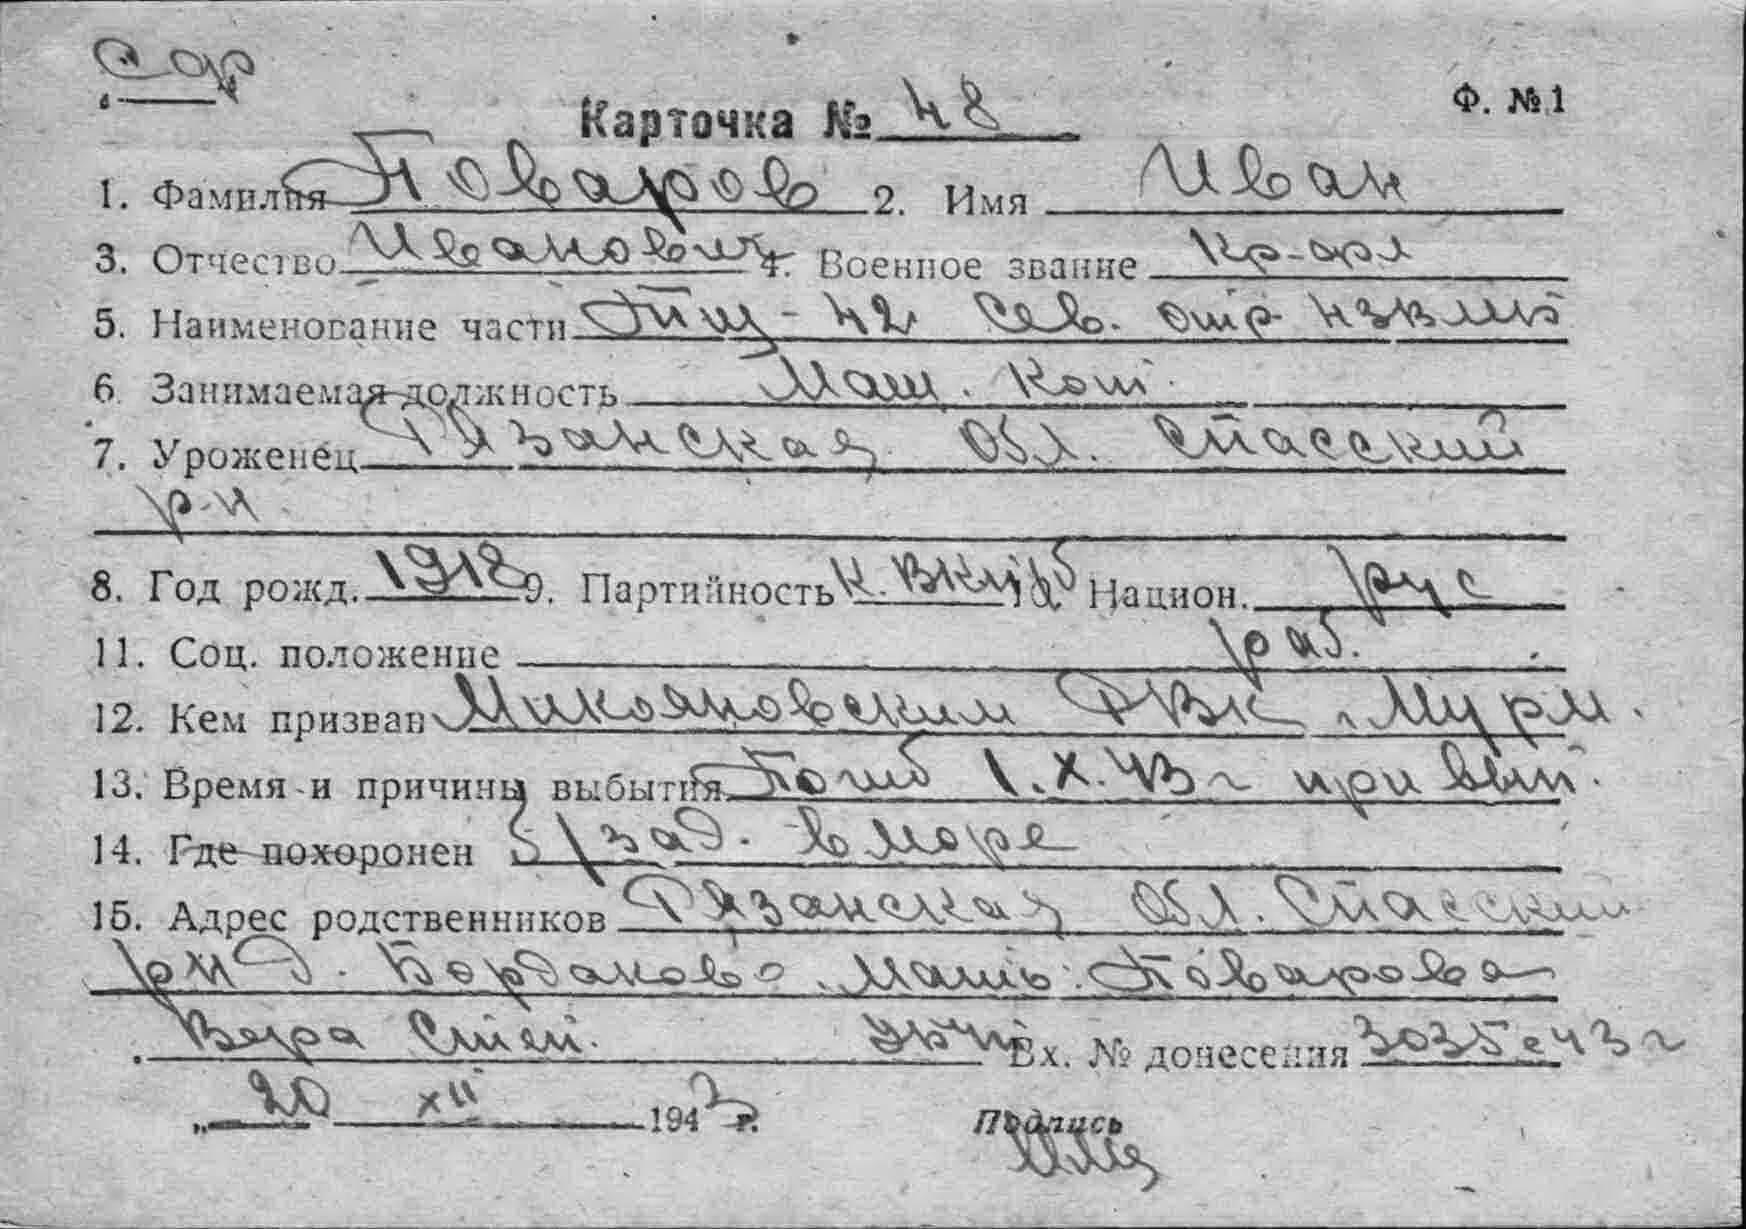 Ф. №1
Карточка № 48
1. Фамилия Поваров 2. Имя Иван
3. Отчество Иванович 4. Военное звание Кр-фл
5. Наименование части Тщ-42 Сев. отр
6. Занимаемая должность Маш. кот.
7. Уроженец Рязанская обл. Спасский
р-н
8. Год рожд. 1918 9. Партийность к. ВКП/б 10. Национ. рус
11. Соц. положение раб.
12. Кем призван Микояновским РВК г. Мурм.
13. Время и причины выбытия Погиб 1.X.43 г при вып.
14. Где похоронен б/зад. в море
15. Адрес родственников Рязанская обл. Спасский
рн д. Бордаково. Мать: Поварова
Вера Степ. Вх. № донесения 3035с 43 г
„ 20 XII 1943 г.
Подпись